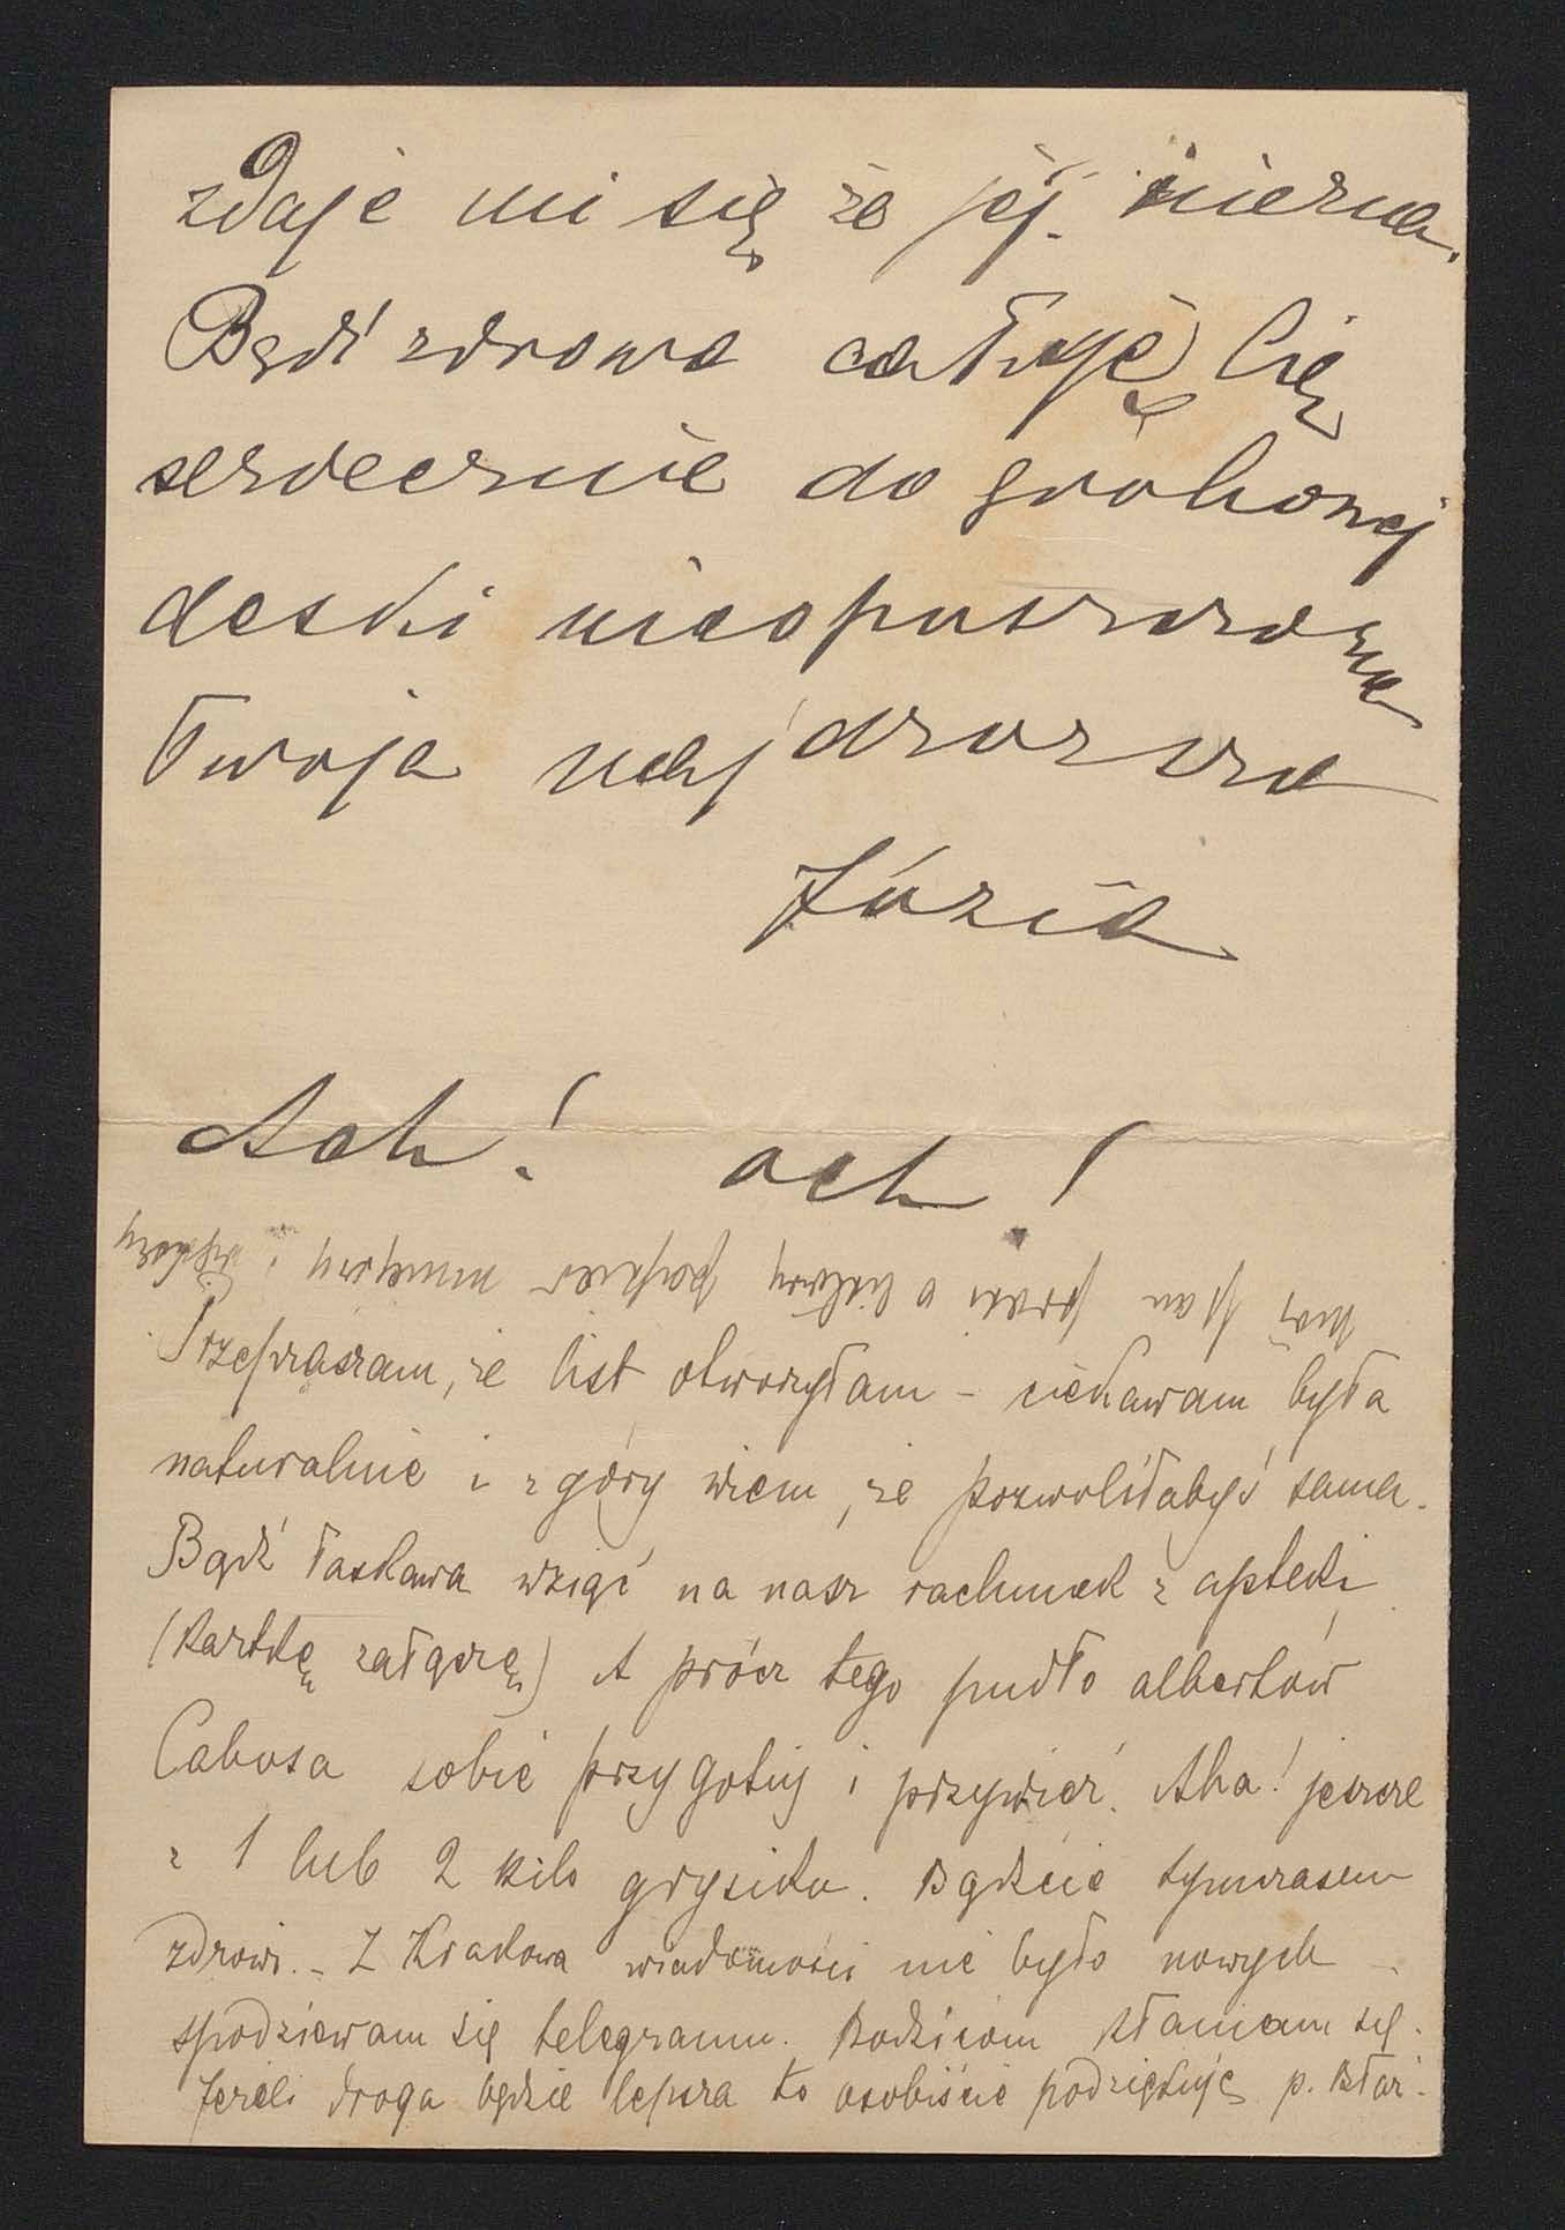 zdaje mi się że jej niema.
Bądź zdrowa całuję Cię
serdecznie do grobowej
deski nieopuszczona
Twoja najdroższa
Józia
Ach! ach!
mój pan prosi o bibułkę papier
Przepraszam, że list otworzyłam – ciekawam była
naturalnie i z góry wiem, że pozwoliłabyś sama.
Bądź łaskawa wziąć na nasz rachunek z apteki
(kartkę załączę) A prócz tego pudło albertów
Cabosa sobie przygotuj i przywieź. Aha! jeszcze
z 1 lub 2 kilo grysiku. Bądźcie tymczasem
zdrowi. – Z Krakowa wiadomości nie było nowych –
spodziewam się telegramu. Rodzicom kłaniam się.
Jeżeli droga będzie lepsza to osobiście podziękuję p.